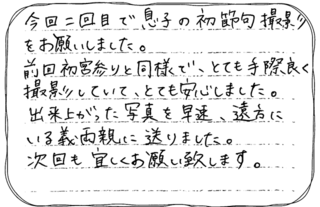 今回二回目で息子の初節句撮影
をお願いしました。
前回初宮参りと同様で、とても手際良く
撮影していて、とても安心しました。
出来上がった写真を早速、遠方に
いる義両親に送りました。
次回も宜しくお願い致します。